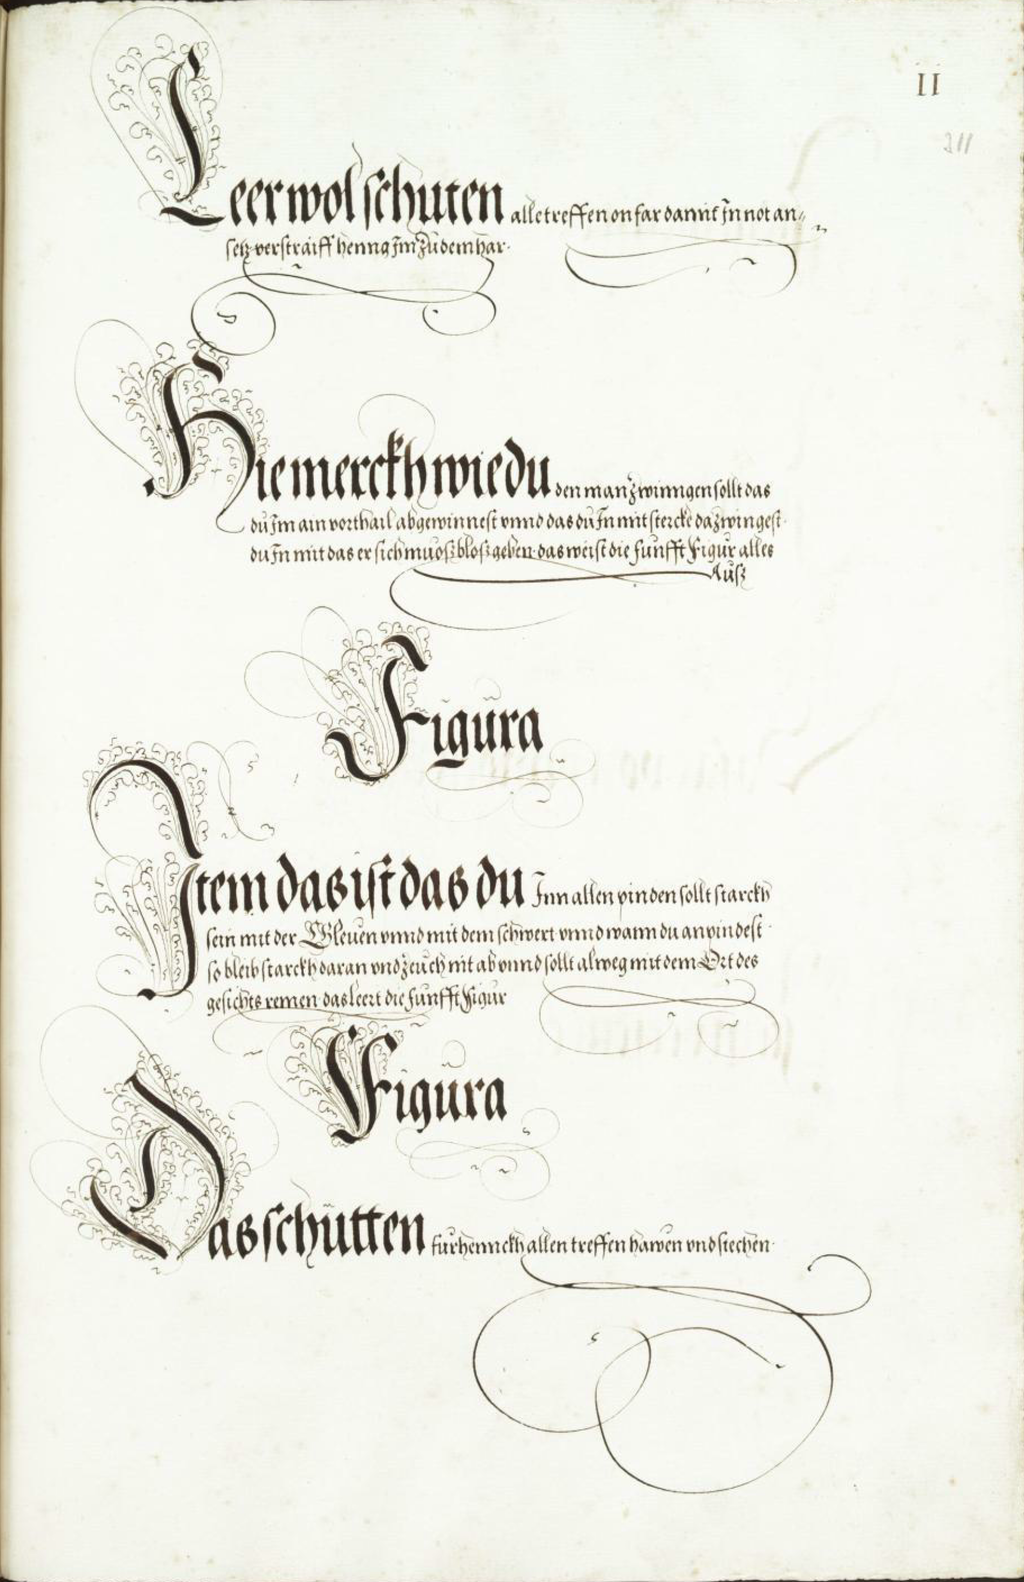 II
211
Leer wol schuten alle treffen on far damit In not an-
setz verstraiff henng Im Zu dem har.
Hie merckh wie du den man Zwinngen sollt das
du Im ain vorthail abgewinnest vnnd das du In mit stercke da zwingest.
du In mit das er sich muosz blosz geben. das weist die funfft Figur alles
Ausz
Figura
Item das ist das du Inn allen pinden sollt starckh
sein mit der Gleuen vnnd mit dem schwert vnnd wann du anpindest
so bleib starckh daran vnd zeuch nit ab vnnd sollt alweg mit dem Ort des
gesichts remen das leert die funfft Figur
Figura
Das schutten fur hennckh allen treffen hawen vnd stechen.